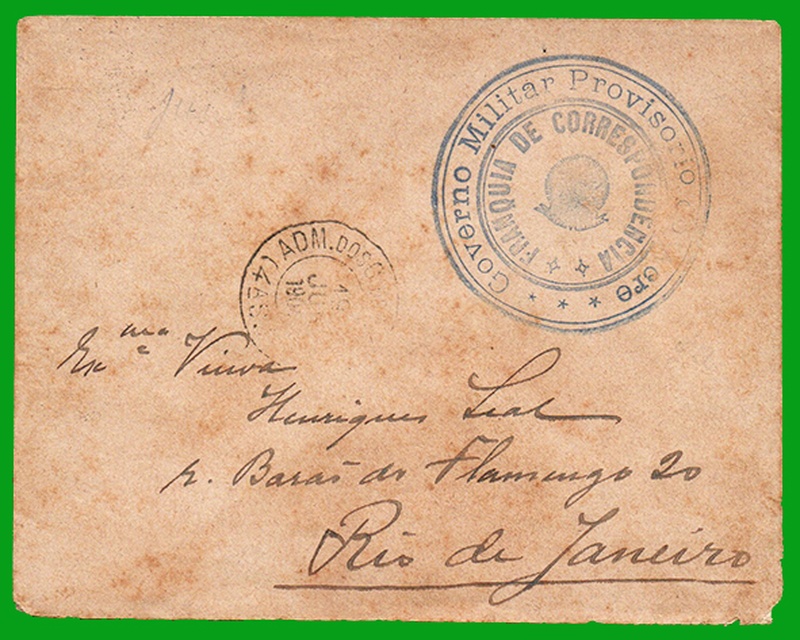 Governo Militar Provisorio
FRANQUIA DE CORRESPONDENCIA
ADM. DOS C
Exma
e Viuva
Henriques Leal
r. Barão do Flamengo 20
Rio de Janeiro